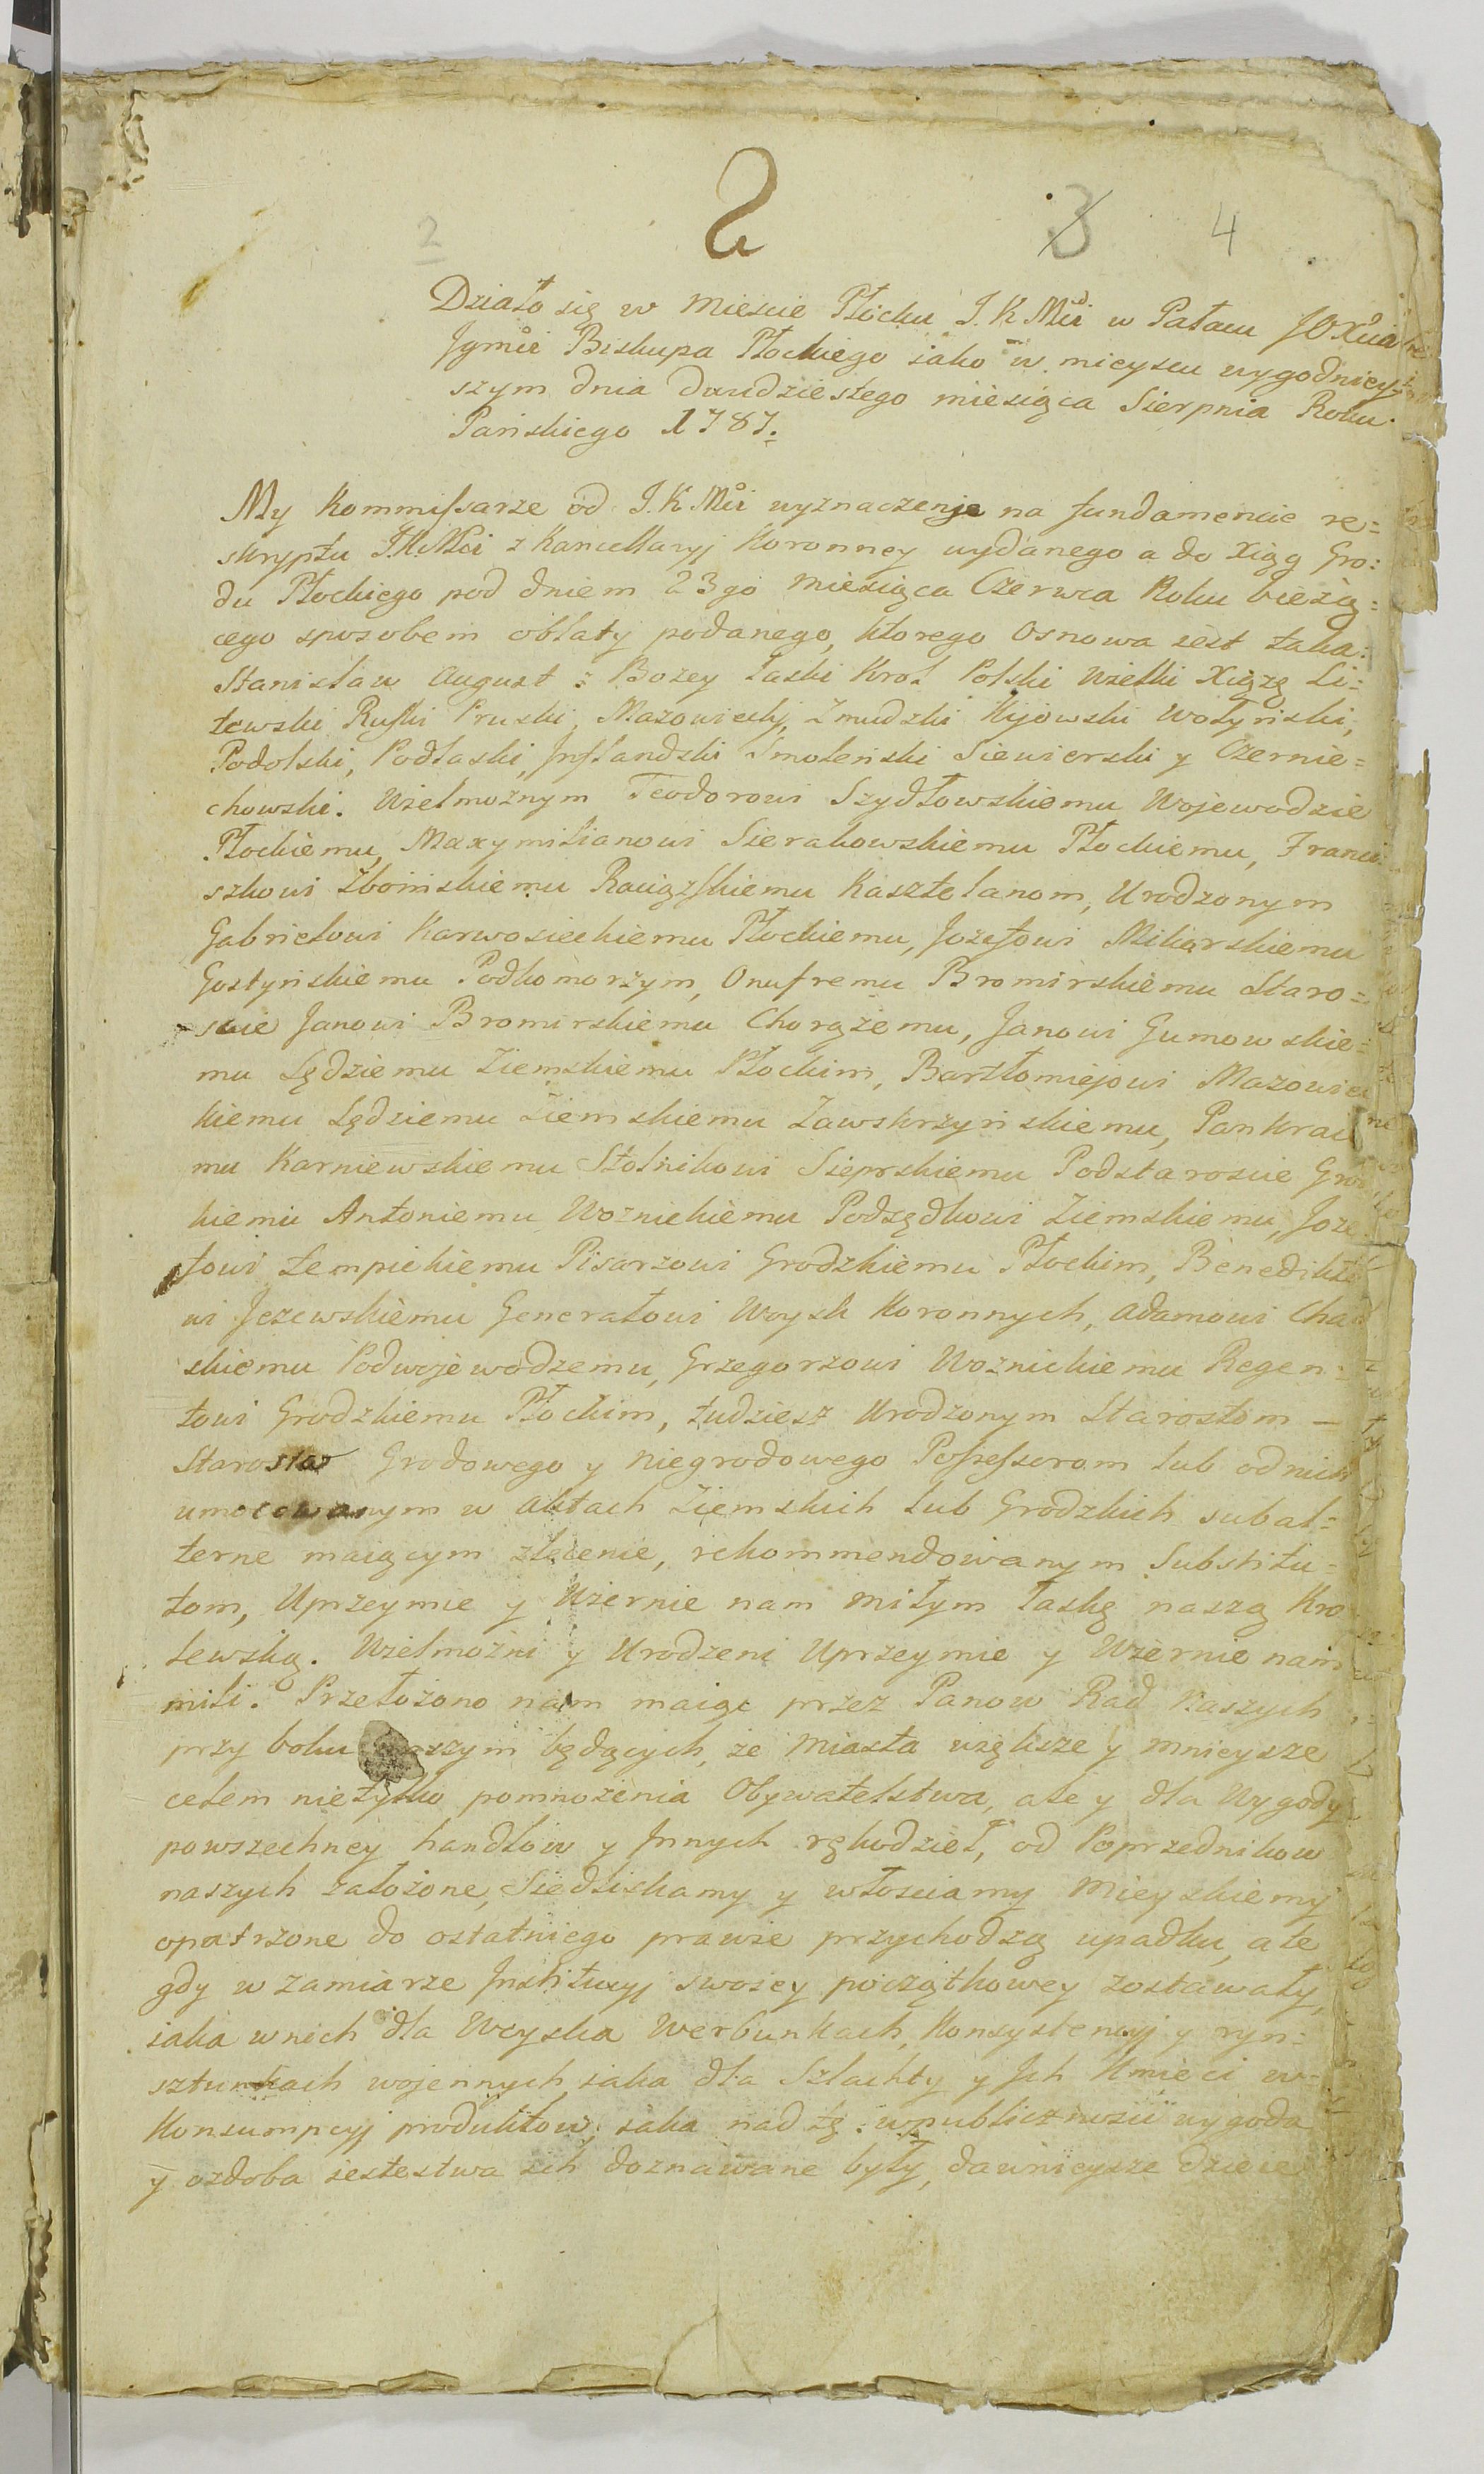 2 2 3 4
Działo się w Mieście Płocku J. K Mci w Pałacu JOXcia
Jgmci Biskupa Płockiego iako w mieyscu wygodniey-
szym dnia dwudziestego miesiąca Sierpnia Roku
Pańskiego 1787.
My Kommissarze od J. K Mci wyznaczenje na fundamencie re=
skryptu JKMci z Kancellaryj Koronney wydanego a do Xiąg Gro:
du Płockiego pod dniem 23go Miesiąca Czerwca Roku bieżą=
cego sposobem oblaty podanego, ktorego Osnowa iest taka:
Stanisław August z Bożey łaski Krol Polski Wielki Xiążę Li=
tewski Ruski Pruski, Mazowiecki, Zmudzki Kijowski Wołyński,
Podolski, Podlaski, Jnflandzki Smoleński Siewierski y Czernie=
chowski. Wielmożnym Teodorowi Szydłowskiemu Wojewodzie
Płockiemu, Maxymilianowi Sierakowskiemu Płockiemu, Franci
szkowi Zboinskiemu Raciązskiemu Kasztelanom, Urodzonym
Gabrielowi Karwosieckiemu Płockiemu, Jozefowi Mikorskiemu
Gostyńskiemu Podkomorzym, Onufremu Bromirskiemu Staro=
scie Janowi Bromirskiemu Chorążemu, Janowi Gumowskie=
mu Sędziemu Ziemskiemu Płockim, Bartłomiejowi Mazowiec
kiemu Sędziemu Ziemskiemu Zawskrzyńskiemu, Pankrace
mu Karniewskiemu Stolnikowi Sieprskiemu Podstaroscie Gro
kiemu Antoniemu Woznickiemu Podsędkowi Ziemskiemu, Joze
fowi Łempickiemu Pisarzowi Grodzkiemu Płockim, Benedikto
wi Jezewskiemu Generałowi Woysk Koronnych, Adamowi
skiemu Podwojewodzemu, Grzegorzowi Woznickiemu Regen=
towi Grodzkiemu Płockim, tudziesz Urodzonym Starostom —
Starostw Grodowego y niegrodowego Possessorom lub od nich
umocowanym w Aktach Ziemskich lub Grodzkich subal=
terne maiącym zlecenie, rekommendowanym Substitu=
tom, Uprzeymie y Wiernie nam miłym łaskę naszą Kro
lewską. Wielmożni y Urodzeni Uprzeymie y Wiernie nam
mili. Przełożono nam maiąc przez Panow Rad Naszych
przy boku naszym będących, że Miasta większe y mnieysze
celem nietylko pomnożenia Obywatelstwa, ale y dla Wygody
powszechney handlow y Jnnych rękodzieł, od Poprzednikow
naszych założone, Siedliskamy y włosciamy Mieyskiemy
opatrzone do ostatniego prawie przychodzą upadku, ale
gdy w zamiarze Jnstitucyj swoiey początkowey zostawały,
iaka w nich dla Woyska Werbunkach, Konsystencyj y ryn=
sztunkach wojennych, iaka dla Szlachty y Jch Kmieci w-
Konsumpcyj produktow, iaka nad tę w publicznosci wygoda
y ozdoba iestestwa ich doznawane były, dawnieysze dzieie